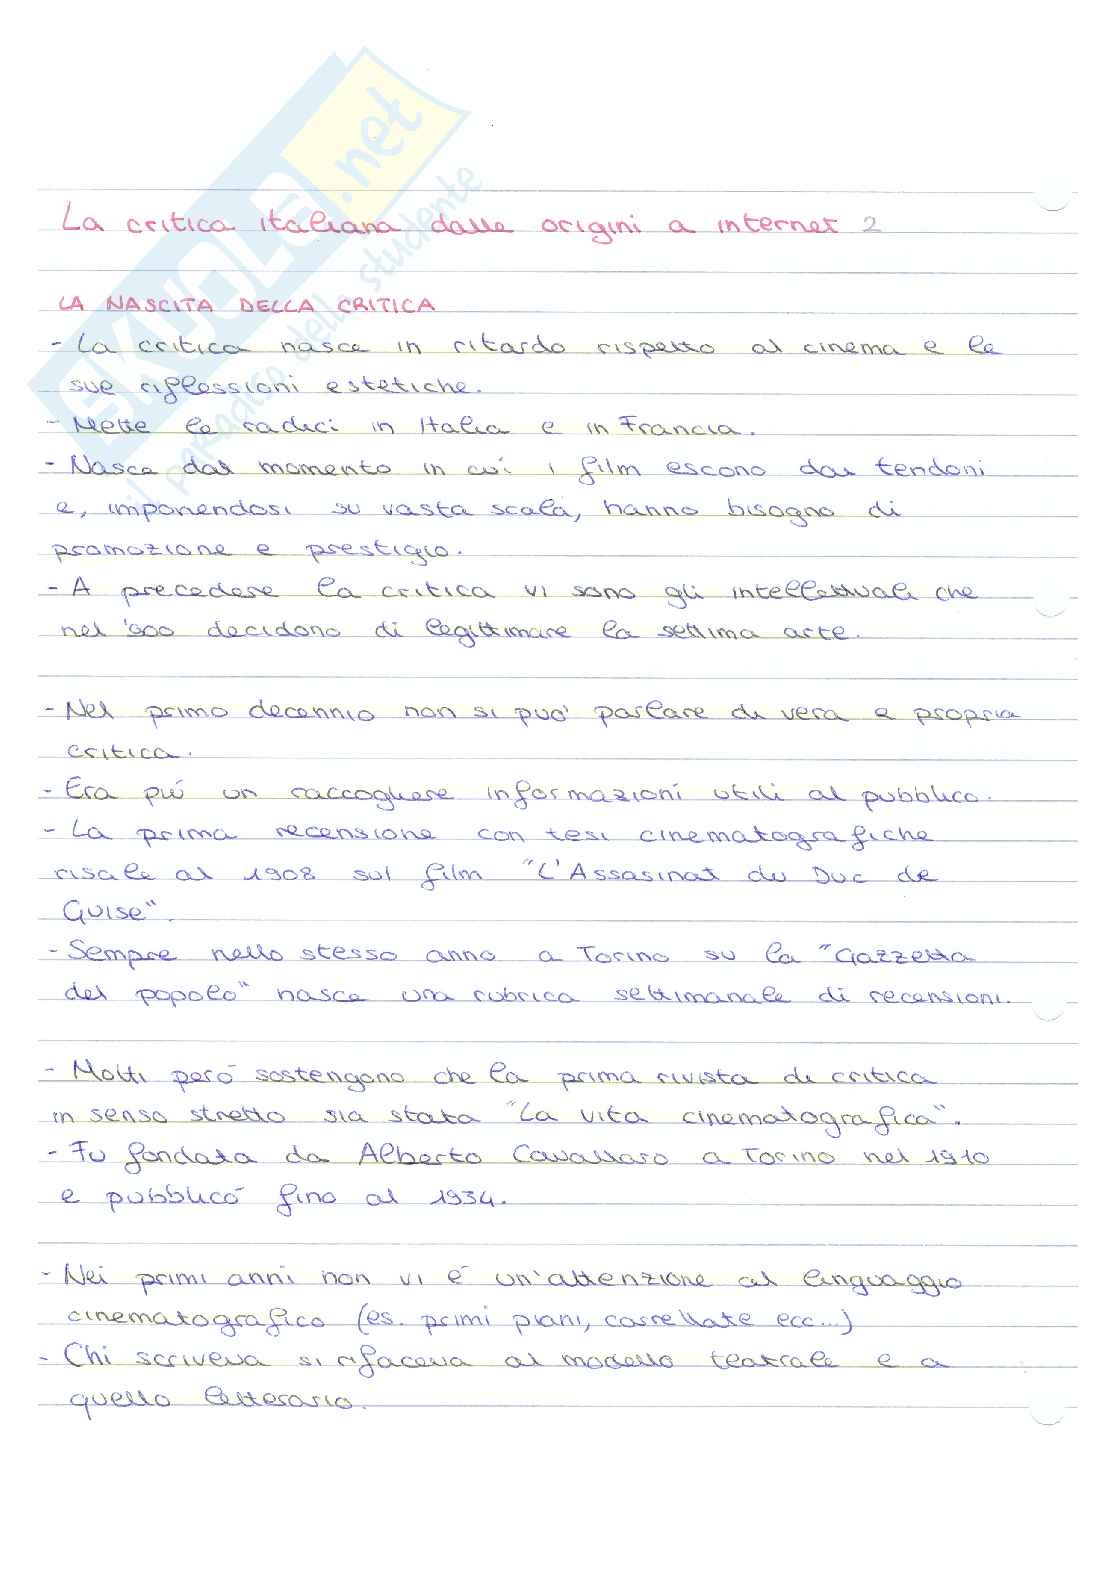 SKUOLA.net
il paradiso dello studente
La critica italiana dalle origini a internet 2
LA NASCITA DELLA CRITICA
- La critica nasce in ritardo rispetto al cinema e le
sue riflessioni estetiche.
- Mette le radici in Italia e in Francia.
- Nasce dal momento in cui i film escono dai tendoni
e, imponendosi su vasta scala, hanno bisogno di
promozione e prestigio.
- A precedere la critica vi sono gli intellettuali che
nel '900 decidono di legittimare la settima arte.
- Nel primo decennio non si può parlare di vera e propria
critica.
- Era più un raccogliere informazioni utili al pubblico.
- La prima recensione con tesi cinematografiche
risale al 1908 sul film "L'Assasinat du Duc de
Guise".
- Sempre nello stesso anno a Torino su la "Gazzetta
del popolo" nasce una rubrica settimanale di recensioni.
- Molti però sostengono che la prima rivista di critica
in senso stretto sia stata "La vita cinematografica".
- Fu fondata da Alberto Cavallaro a Torino nel 1910
e pubblicò fino al 1934.
- Nei primi anni non vi è un'attenzione al linguaggio
cinematografico (es. primi piani, carrellate ecc...)
- Chi scriveva si rifaceva al modello teatrale e a
quello letterario.